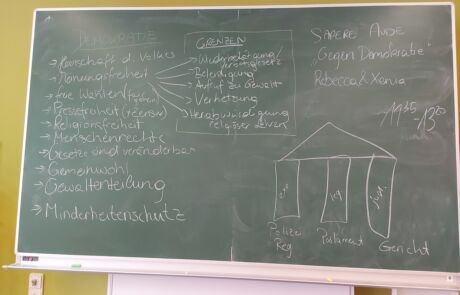 DEMOKRATIE
→ Herrschaft d. Volkes
→ Meinungsfreiheit
→ freie Wahlen
→ Pressefreiheit
→ Religionsfreiheit
→ Menschenrechte
→ Gesetze sind veränderbar
→ Gemeinwohl
→ Gewaltenteilung
→ Minderheitenschutz
GRENZEN
→ Wiederbetätigung/
Verbotsgesetz
→ Beleidigung
→ Aufruf zu Gewalt
→ Verhetzung
→ Herabwürdigung
religiöser
SAPERE AUDE
„Gegen Demokratie"
Rebecca & Xenia
11 35 - 13 20
Polizei
Reg
Parlament
Gericht